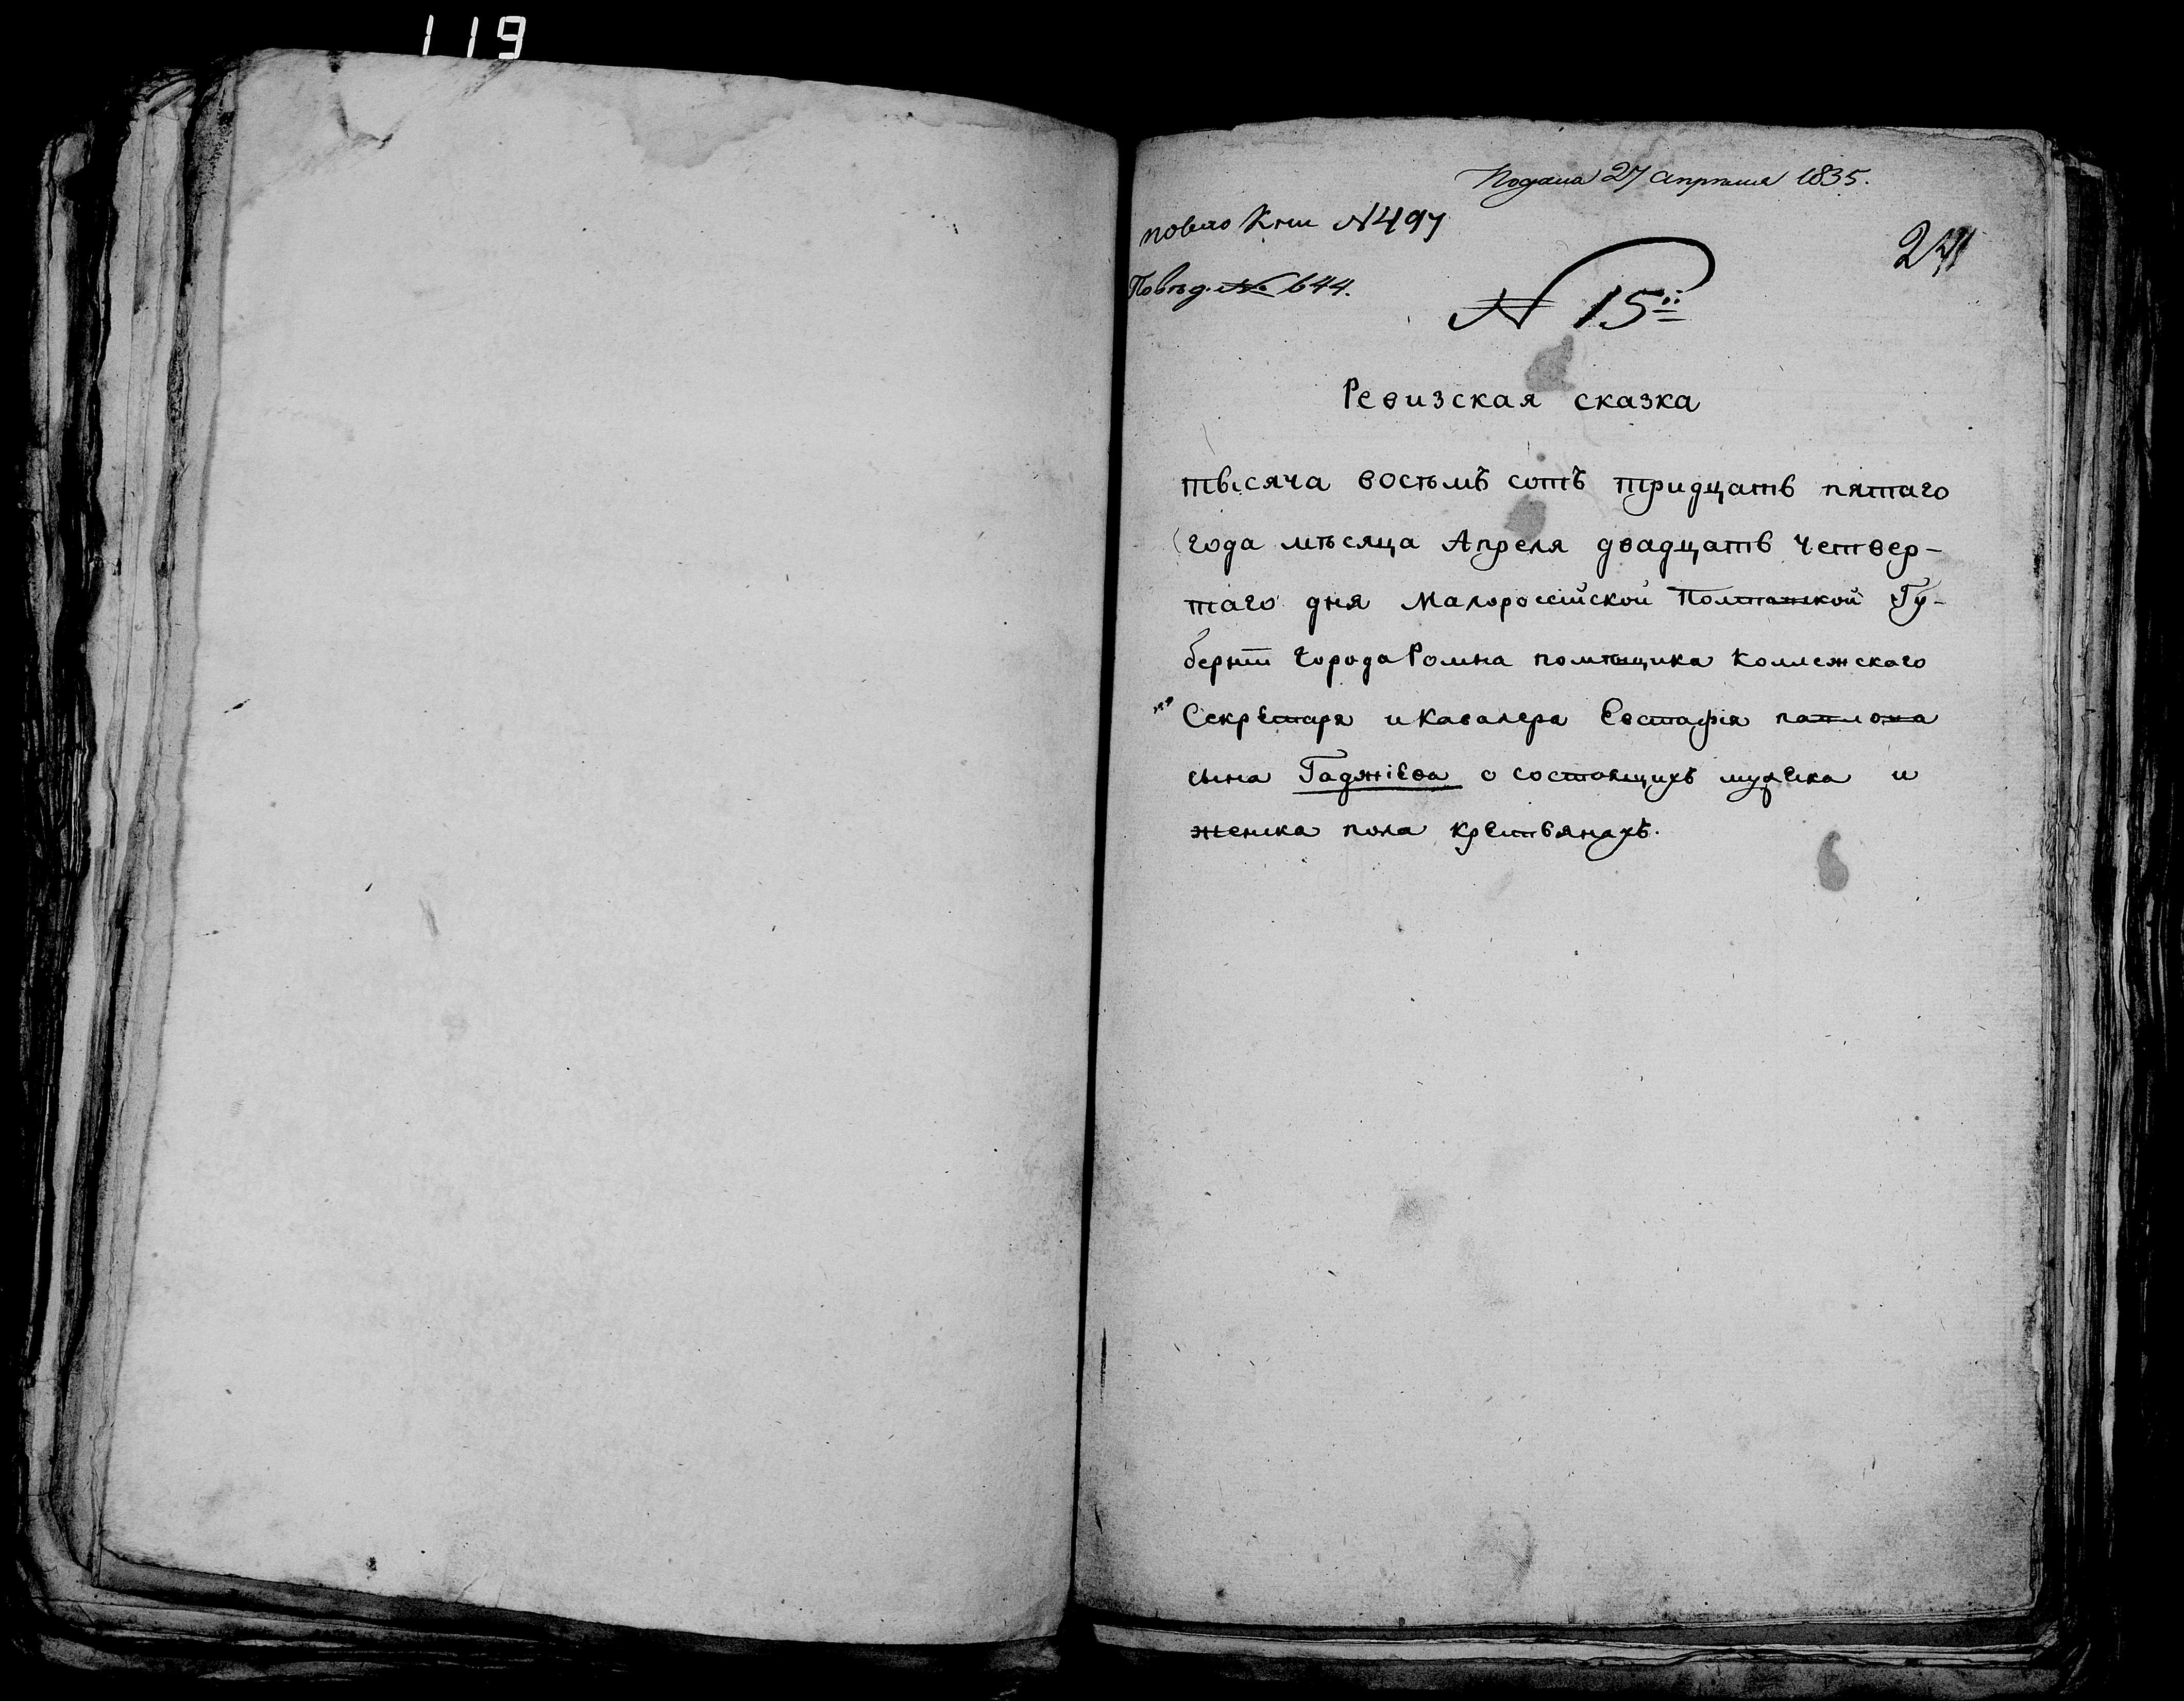 119
Подана 27 апрѣля 1835.
N 497
Повѣд. № 644.
N 15й
Ревизская сказка
тысяча восемъ сотъ тридцать пятаго
года мѣсяца Апреля двадцать четвер-
таго дня Малороссійской Полтавской Гу-
берніи города Ромна помѣщика Коллежскаго
Секретаря и Кавалера Евстафія павлова
сына Гаджіева о состоящихъ мужеска и
женска пола крестьянахъ.